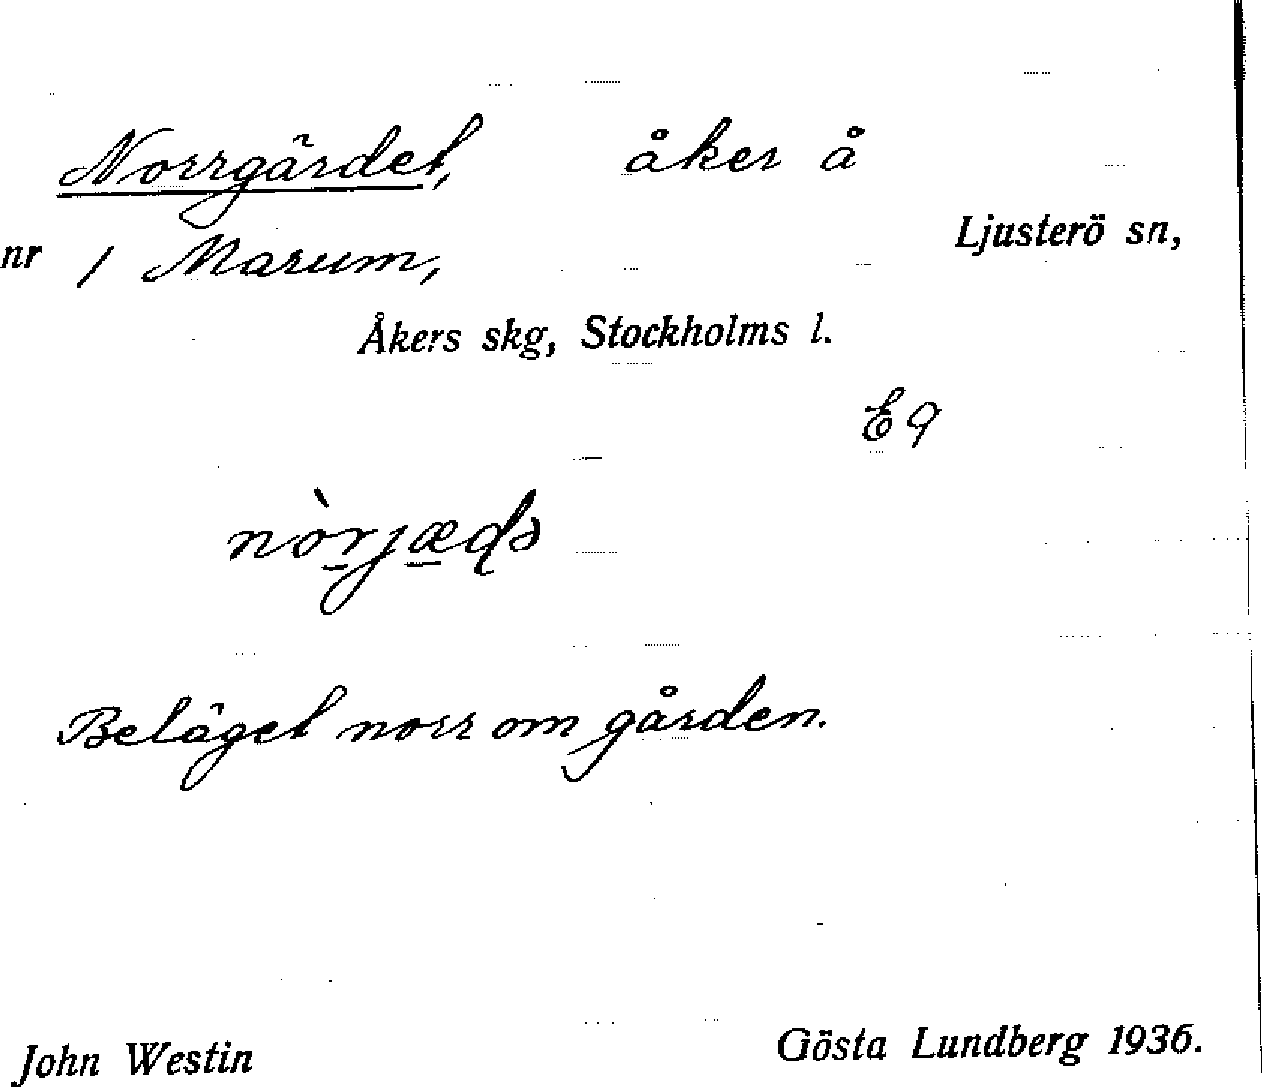 Norrgärdet, åker å
Ljusterö sn,
nr 1 Marum,
Åkers skg, Stockholms l.
E9
Beläget norr om gården.
John Westin Gösta Lundberg 1936.